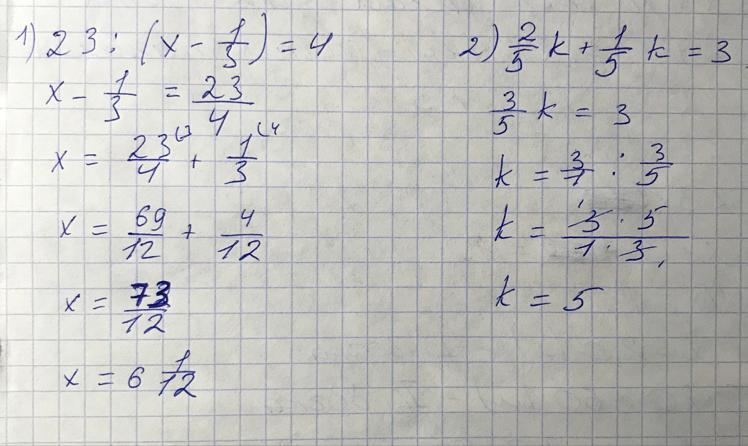 1) 23 : (x - 1/3) = 4
x - 1/3 = 23/4
x = 23/4 (3 + 1/3 (4
x = 69/12 + 4/12
x = 73/12
x = 6 1/12
2) 2/5 k + 1/5 k = 3
3/5 k = 3
k = 3/1 : 3/5
k = 3 · 5 / 1 · 3
k = 5